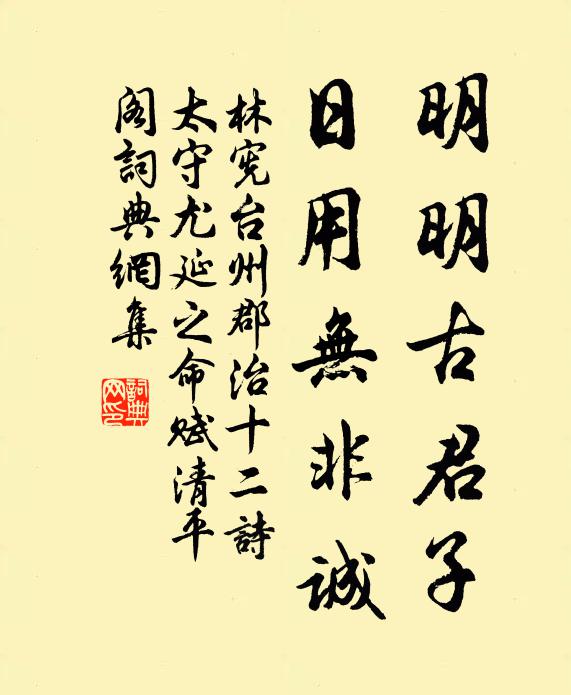 明明古君子
日用無非誠
林宪台州郡治十二詩
太守尤延之命赋清平
阁詞典網集
詞典
网印